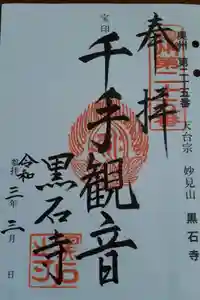 奥州 第二十五番 天台宗 妙見山 黒石寺
奉拝
宝印
千手観音
黒石寺
参拝 令和三年三月 日